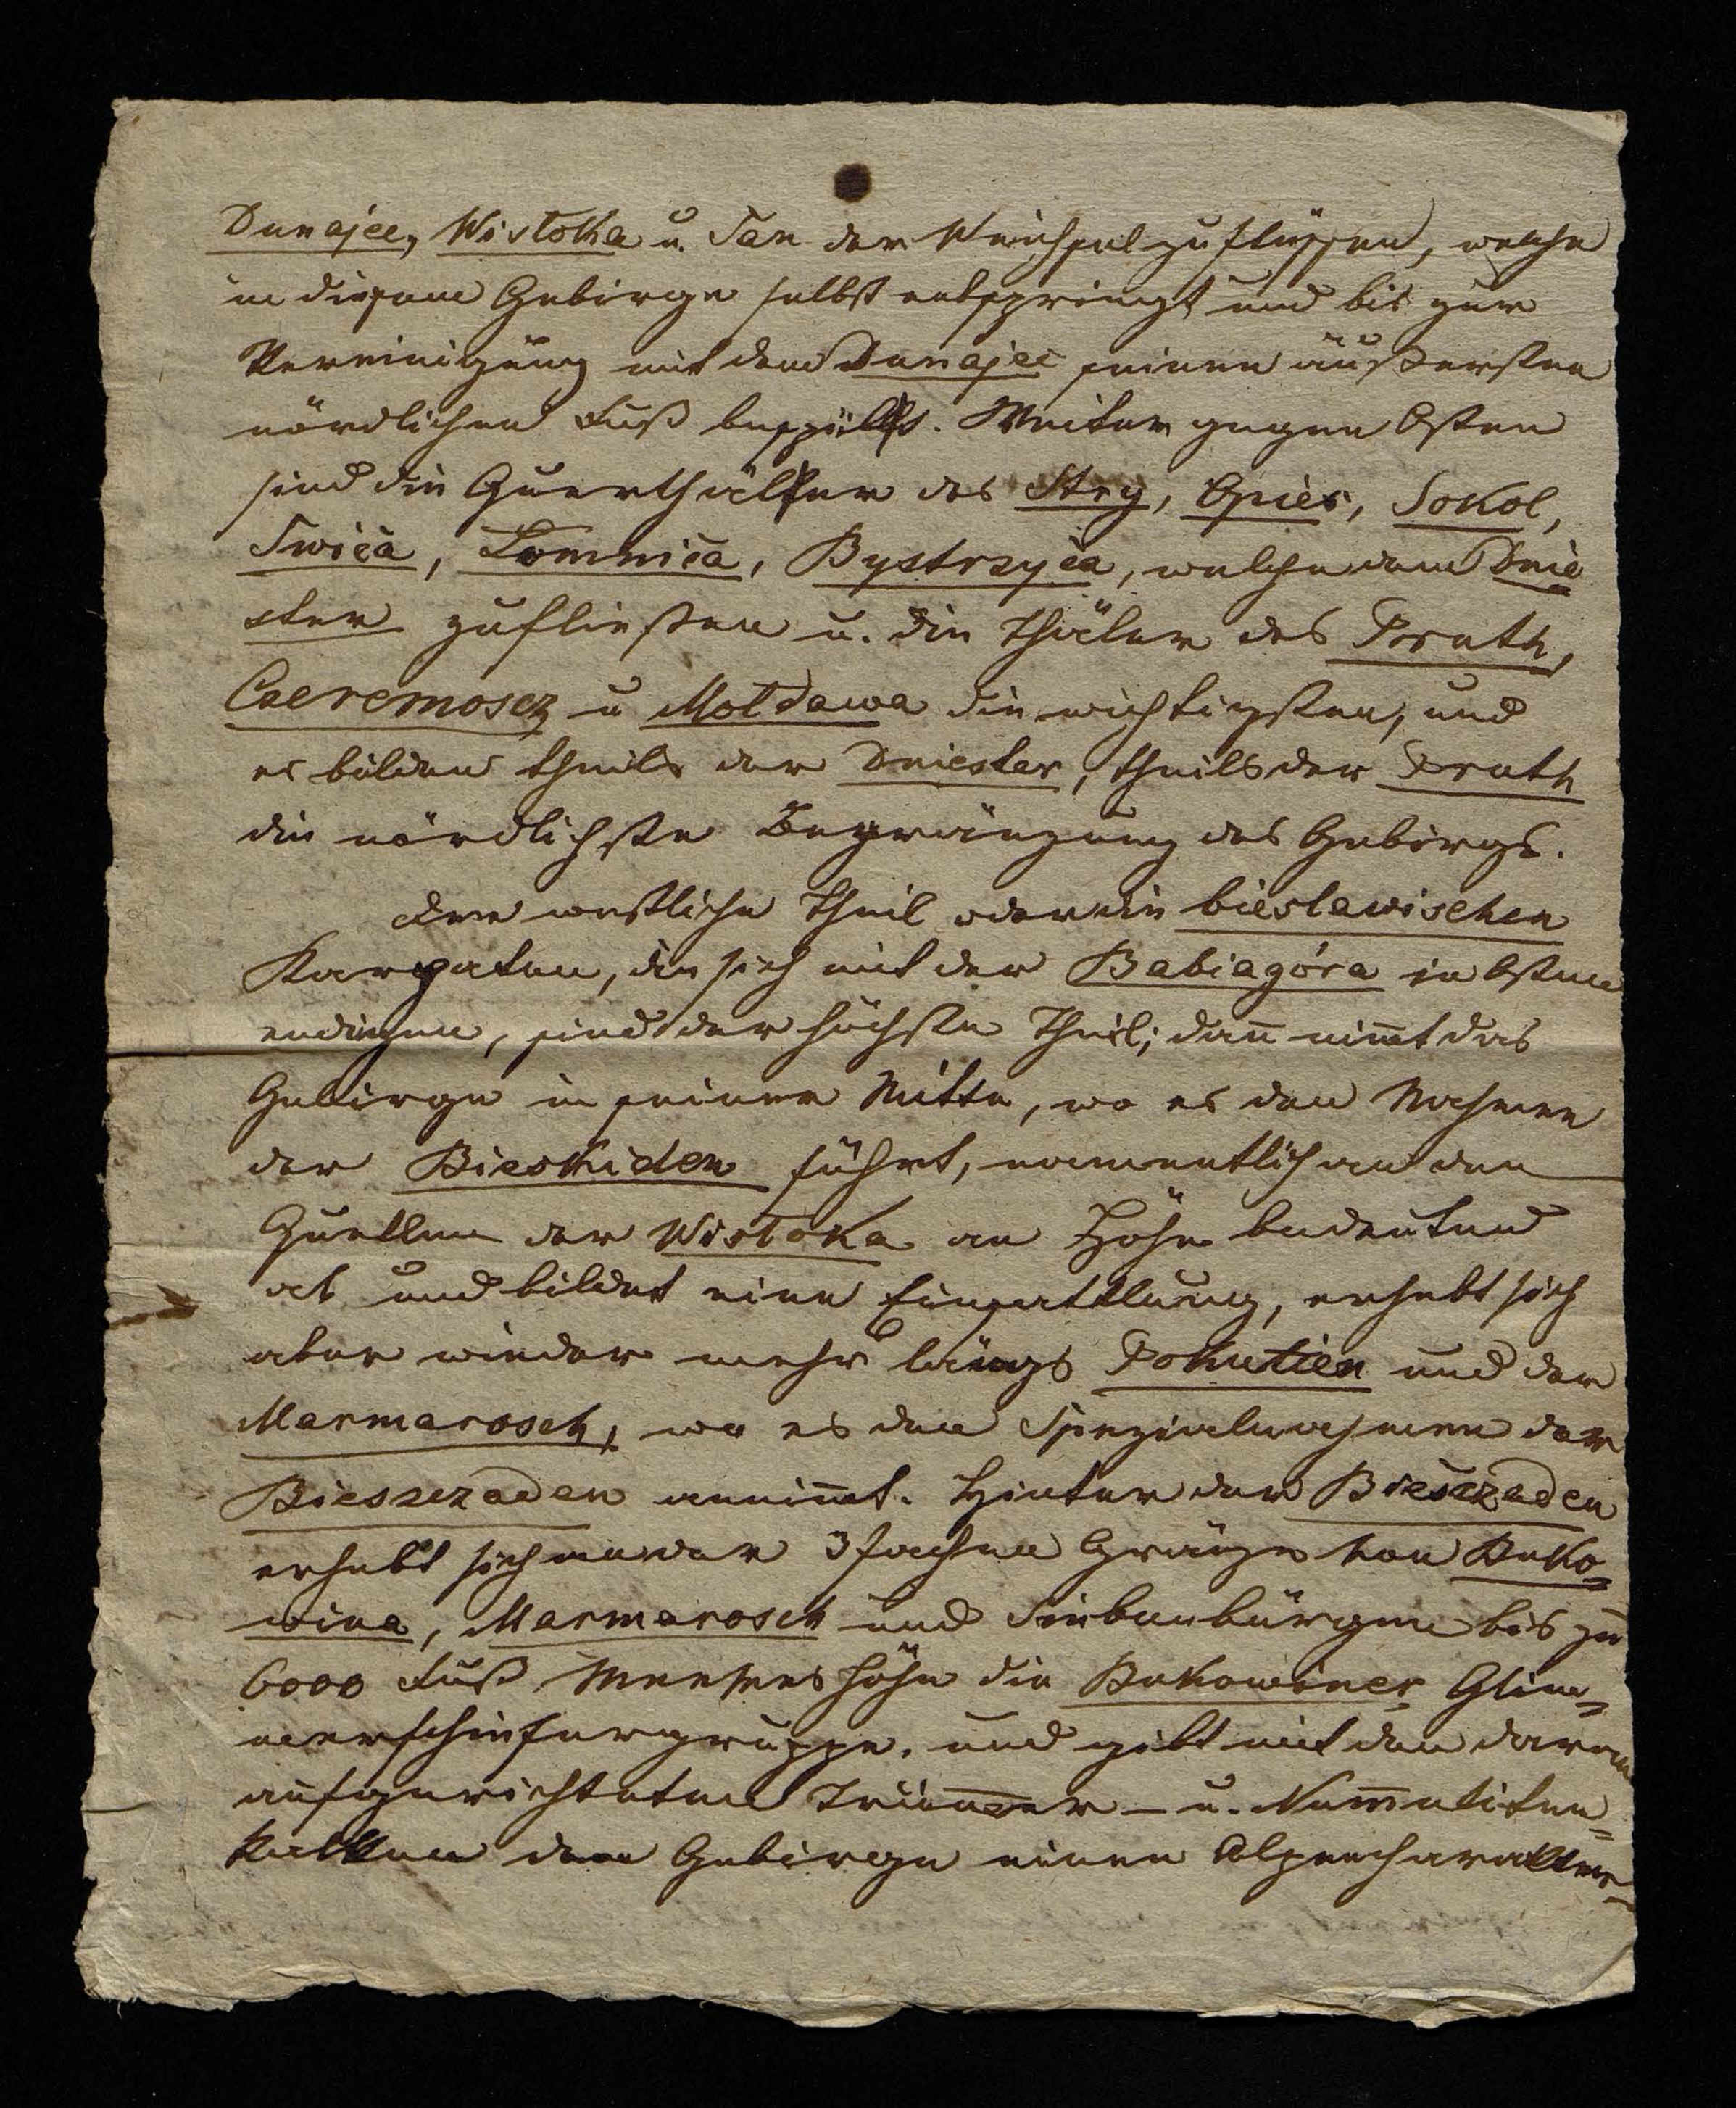 Dunajec, Wistoka u. San der Weichsel zuflüssen, welche
in diesem Gebirge selbst entspringt und bis zur
Vereinigung mit dem Dunajec seinen äußersten
nördlichen Fuß bespült. Weiter gegen Osten
sind die Querthäler des Stry, Opier, Sokol,
Swica, Lomnica, Bystrzyca, welche dem Dnie
ster zufließen u. die Thäler des Pruth,
Czeremosz u Moldawa die wichtigsten, und
es bilden theils der Dniester, theils der Pruth
die nördlichste Begränzung des Gebirgs.
Der westliche Theil oder die bieslawischen
Karpaten, die sich mit der Babiagóra in Osten
endigen, sind der höchste Theil; dañ nim̄t das
Gebirge in seiner Mitte, wo es den Nahmen
der Bieskiden führt, namentlich an den
Quellen der Wistoka an Höhe bedeutend
ab und bildet eine Einsattlung, erhebt sich
aber wieder mehr längs Pokutien und der
Marmarosch, wo es den Spezialnahmen der
Biesszczaden annim̄t. Hinter den Bieszczaden
erhebt sich an der 3fachen Gränze von Buko=
wina, Marmarosch und Siebenbürgen bis zu
6000 Fuß Meereshöhe die Bukowiner Glim=
merschiefergruppe, und gibt mit den daran
aufgerichteten Trümmer- u. Num̄uliten=
kalken dem Gebirge einen Alpencharakter